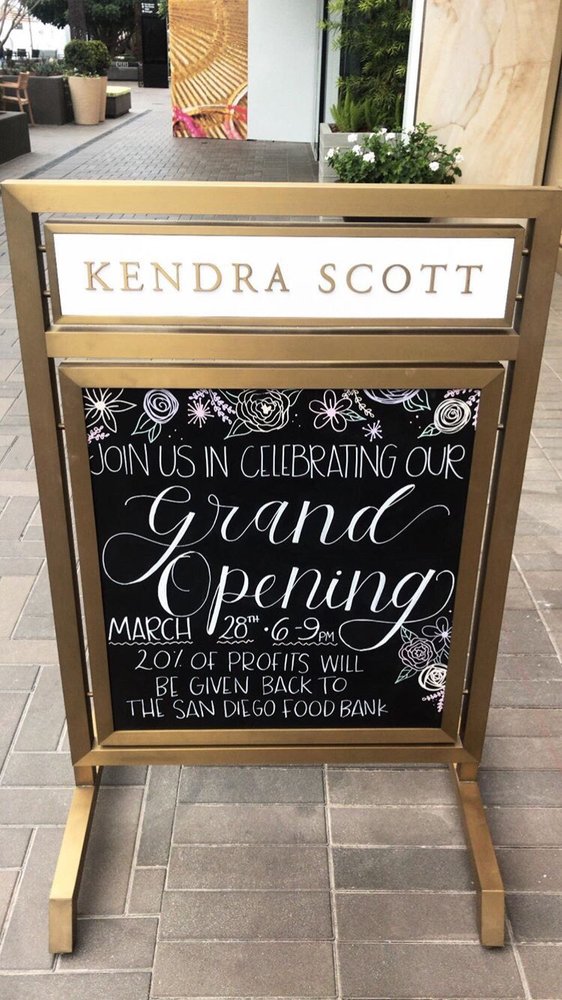 KENDRA SCOTT
JOIN US IN CELEBRATING OUR
Grand
Opening
MARCH 28TH · 6-9PM
20% OF PROFITS WILL
BE GIVEN BACK TO
THE SAN DIEGO FOOD BANK